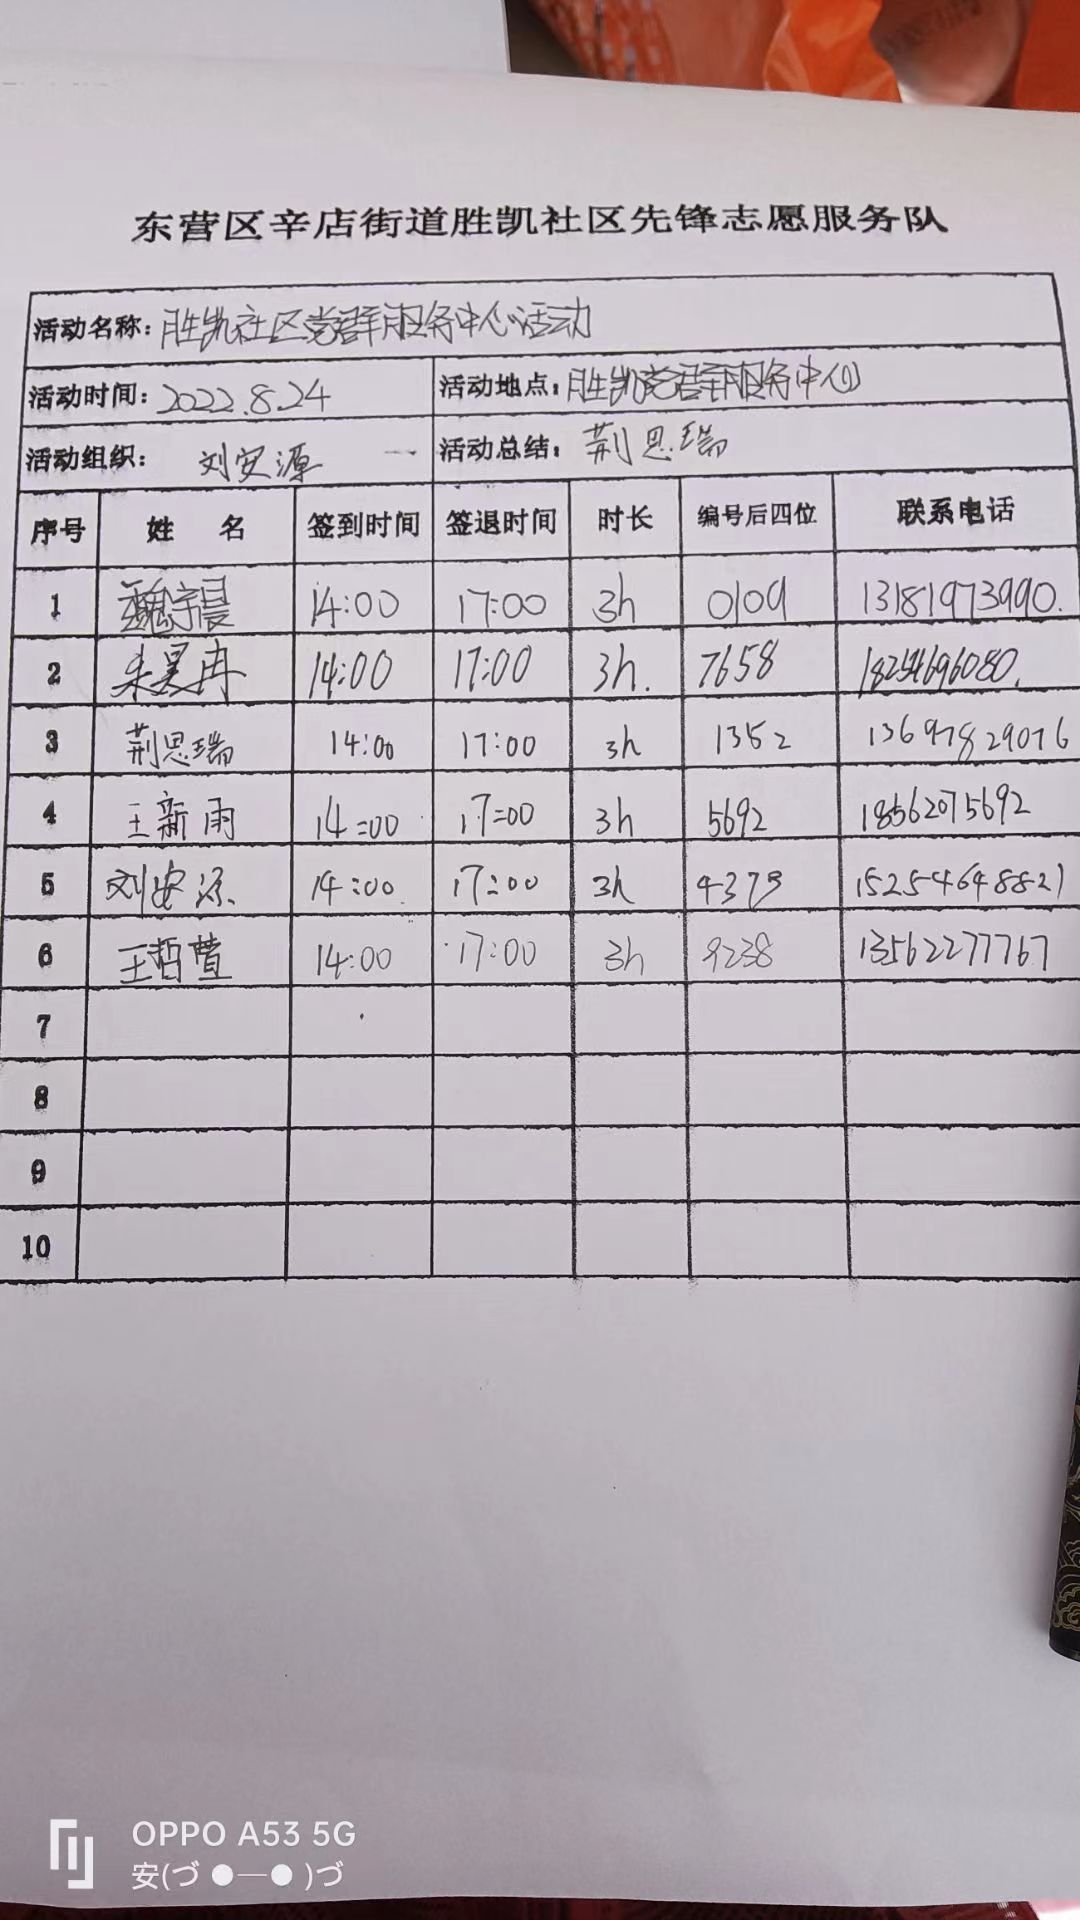 东营区辛店街道胜凯社区先锋志愿服务队
活动名称：胜凯社区党群服务中心活动
活动时间：2022.8.24 活动地点：胜凯党群服务中心
活动组织： 刘安源 活动总结：荆思瑞
序号 姓 名 签到时间 签退时间 时长 编号后四位 联系电话
1 魏宇晨 14:00 17:00 3h 0109 13181973990.
2 朱昊冉 14:00 17:00 3h. 7658 18254696080.
3 荆思瑞 14:00 17:00 3h 1352 13697829076
4 王新雨 14:00 17:00 3h 5692 18562075692
5 刘安源 14:00 17:00 3h 4379 15254648821
6 王哲萱 14:00 17:00 3h 9238 13562277767
7
8
9
10
OPPO A53 5G
安(づ ●—● )づ